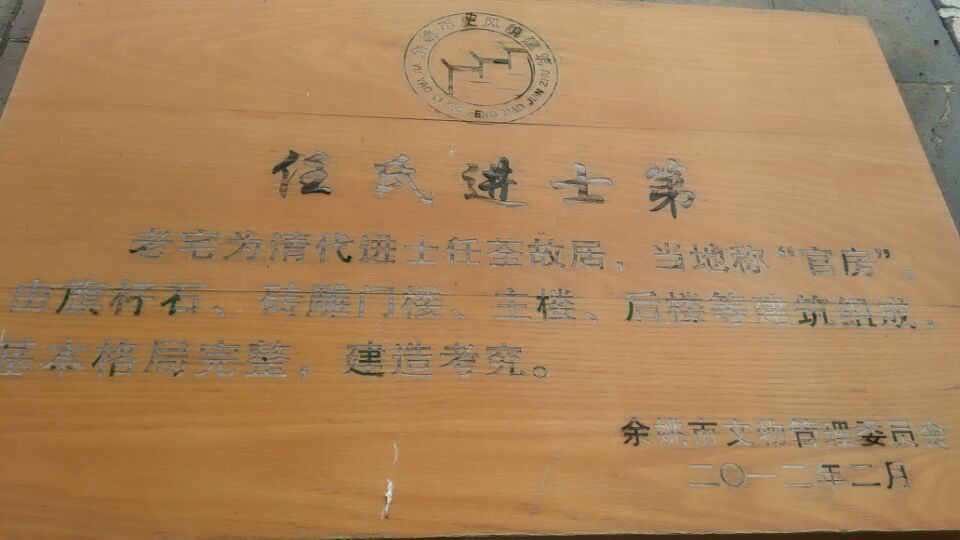 余姚历史风貌建筑
YU YAO LI SHI FENG MAO JIAN ZHU
任氏进士第
老宅为清代进士任荃故居，当地称“官房”，
由旗杆石、砖雕门楼、主楼、后楼等建筑组成，
基本格局完整，建造考究。
余姚市文物管理委员会
二〇一二年二月